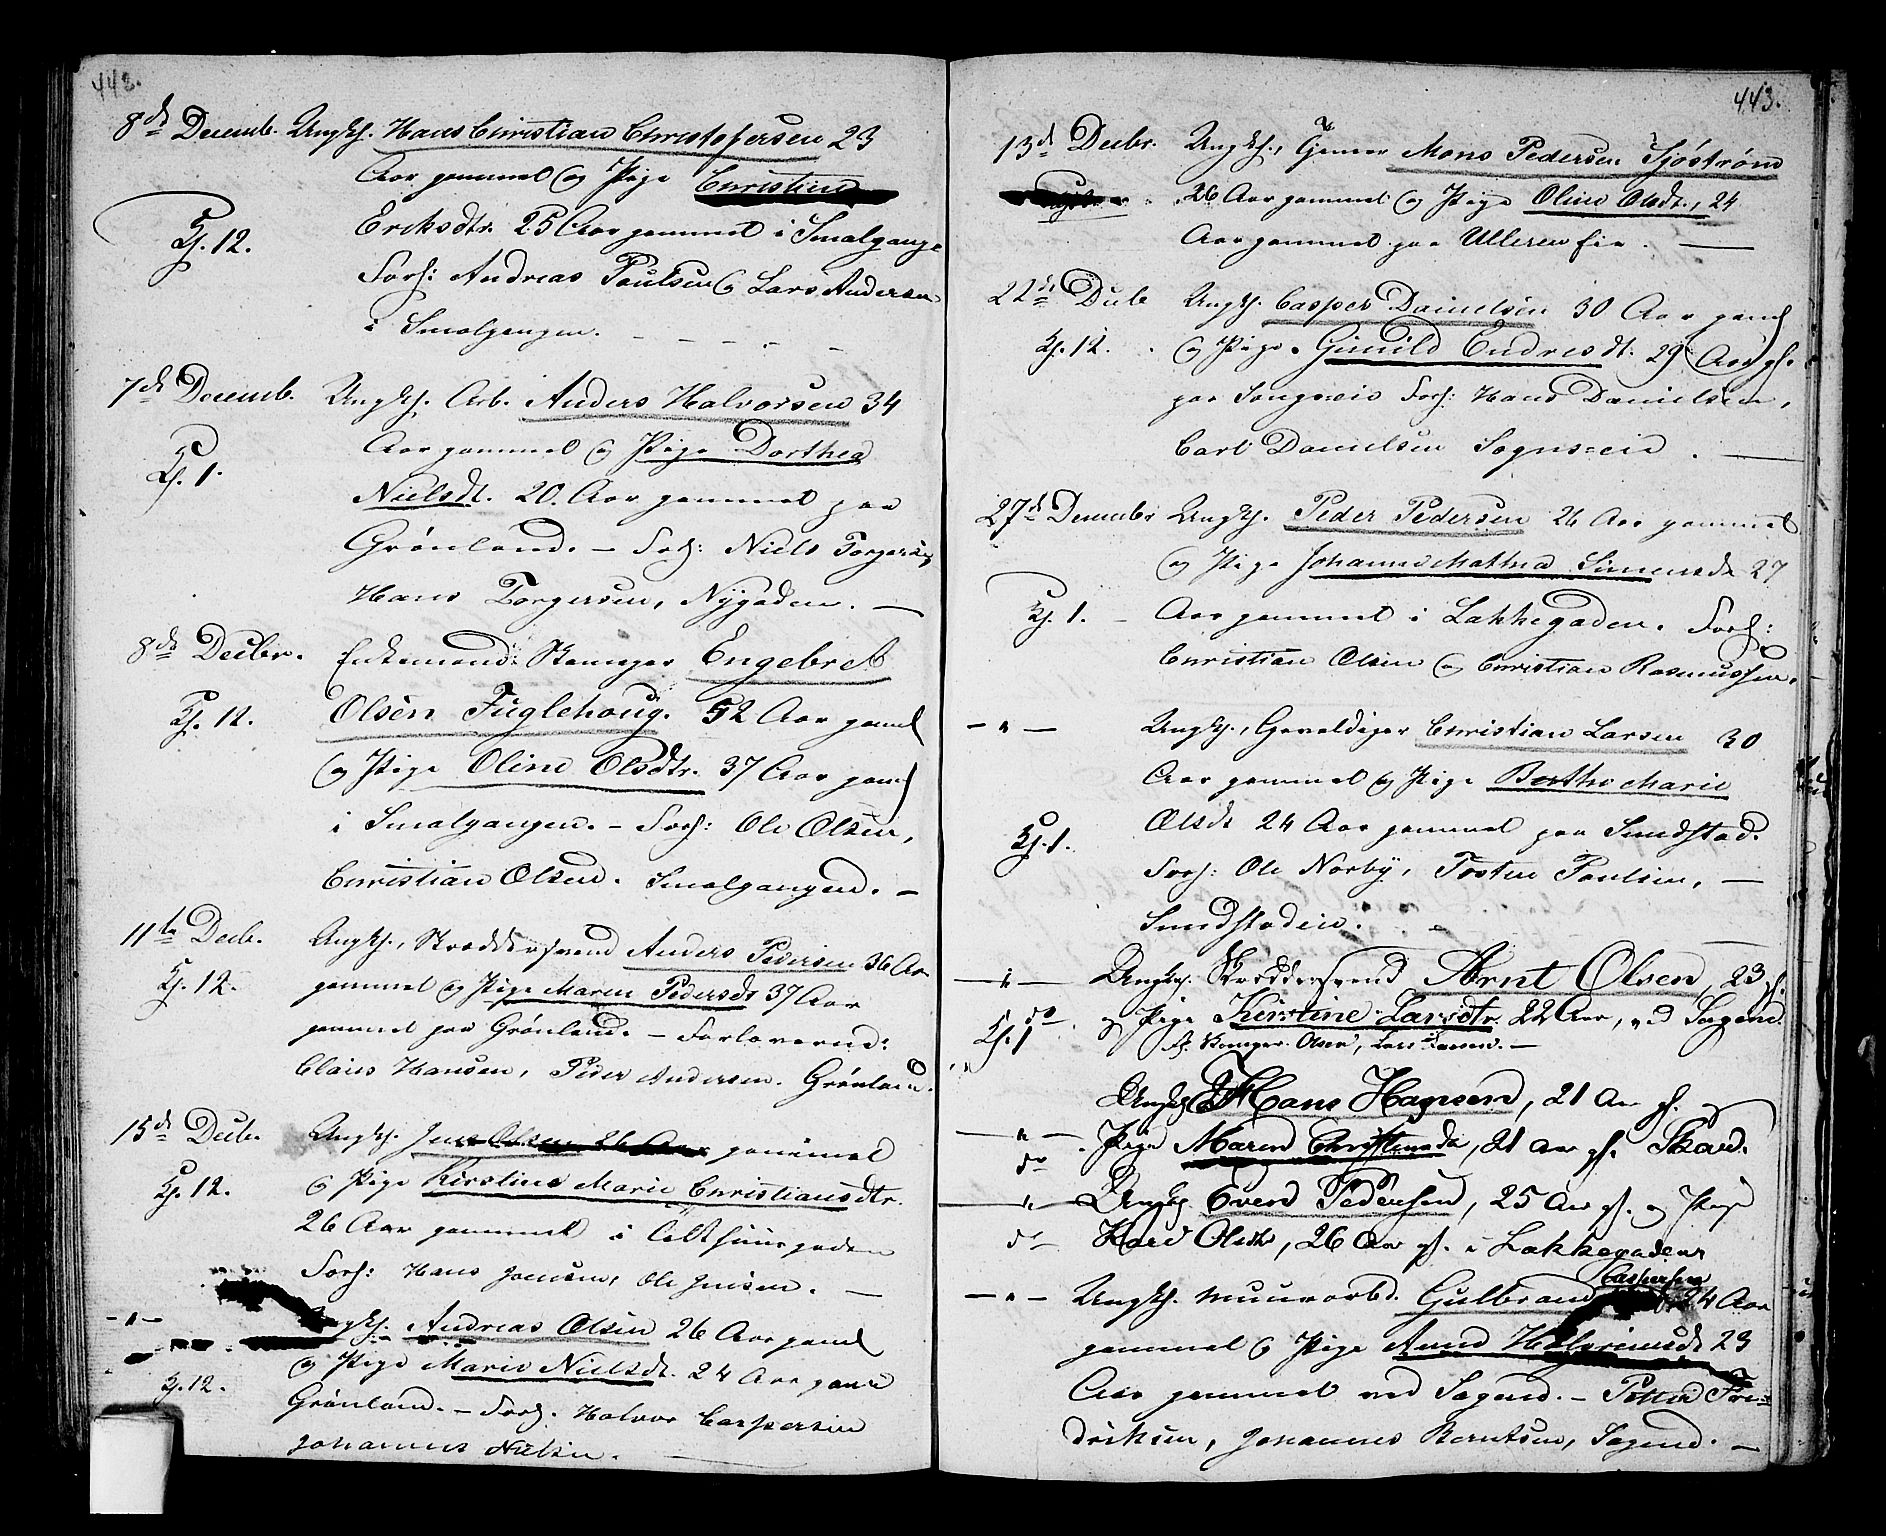 442.
8de Decemb. Ungk. Hans Christian Christofersen 23
Aar gammel og Pige Christine
Kj. 12.
Ericksdtr. 25 Aar gammel i Smalgangen
Forl: Andreas Poulsen og Lars Andersen
i Smalgangen.
7de Decemb. Ungk. Arb. Anders Halvorsen 34
Aar gammel og Pige Dorthea
Kj. 1.
Nielsdt. 20 Aar gammel paa
Grønland. – Forl: Niels Torgersen,
Hans Torgersen, Nygaden. –
8de Decbr. Enkemand Engebret
Kj. 12.
Olsen Fuglehoug. 52 Aar gamel
og Pige Oline Olsdtr. 37 Aar gamel
i Smalgangen. – Forl: Ole Olsen,
Christian Olsen. Smalgangen. –
11te Decb. Ungk., Skreddersvend Anders Pedersen 36 Aar
Kj. 12.
gammel og Pige Maren Pedersdt 37 Aar
gammel paa Grønland. – Forloverne:
Claus Hansen, Peder Andersen. Grønland.
15de Decb. Ungk. Jens Olsen 26 Aar gammel
Kj. 12.
og Pige Kirstine Marie Christiansdtr.
26 Aar gammel i
Forl: Hans Jensen, Ole Jensen. –
– " – Ungk. Andreas Olsen 26 Aar gamel
og Pige Marie Nielsdt. 24 Aar gamel
Kj. 12.
Grønland. – Forl. Halvor Caspersen
Johannes Nielsen.
443.
13de Decbr. Ungk., Mons Pedersen Sjöstrøm
26 Aar gammel og Pige Oline Olsdt., 24
Aar gammel paa Ullerenseie. –
22de Decb Ungk. Casper Danielsen 30 Aar gamel
Kj. 12.
og Pige Gunild Endresdt. 29 Aar gl.
paa Songseie Forl: Hans Danielsen,
Carl Danielsen Sognseie. –
27de Decembr Ungk. Peder Pedersen 26 Aar gammel
og Pige Johanne Mathea Simensdt 27
Kj. 1.
Aar gammel i Lakkegaden. Forl:
Christian Olsen og Christian Rasmussen.
– " – Ungk., Gevaldiger Christian Larsen 30
Aar gammel og Pige Berthe Marie
Kj. 1.
Olsdt 24 Aar gammel paa Sundstad.
Forl: Ole Norby, Tosten Poulsen, –
Sundstadeie. –
– " – Ungk. Skreddersvend Arnt Olsen, 23 gl.
do
Kj. 1
og Pige Kirstine Larsdtr. 22 Aar, ved Sagene.
Olsen, Lars –
Ungk Hans Hansen, 21 Aar gl. og
– " –
do
Pige Maren Christensda, 21 Aar gl.
– " – Ungk Evend Pedersen, 25 Aar gl. og Pige
do
Kari Olsdtr, 26 Aar gl. i Lakkegaden
Caspersen
– " – Ungk. Muurarbd. Gulbrand 24 Aar
gammel og Pige Anne Halvorsdt 23
Aar gammel ved Sagene. – Petter Fre=
driksen, Johannes Berntsen, Sagene. –